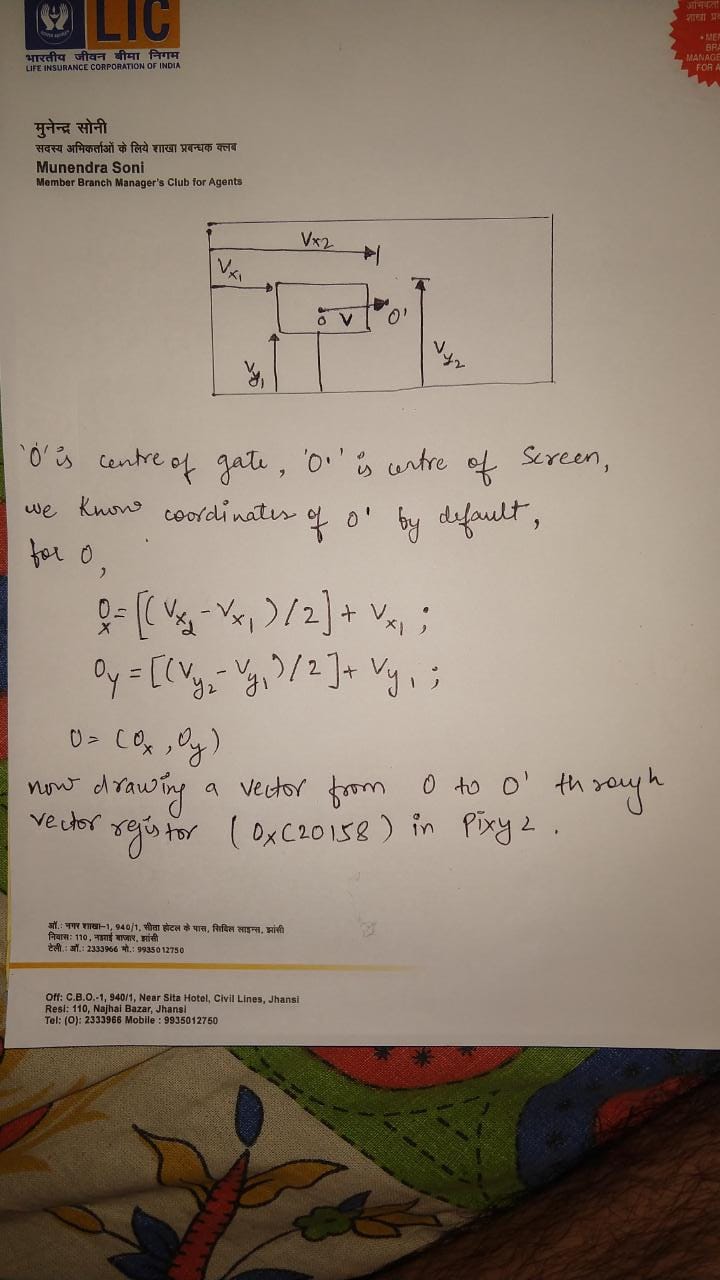 LIC
भारतीय जीवन बीमा निगम
LIFE INSURANCE CORPORATION OF INDIA
• MEM
BRA
MANAGE
FOR A
मुनेन्द्र सोनी
सदस्य अभिकर्ताओं के लिये शाखा प्रबन्धक क्लब
Munendra Soni
Member Branch Manager's Club for Agents
Vx2
Vx1
O V O'
Vy1
Vy2
'O' is centre of gate, 'O'' is centre of Screen,
we Know coordinates of O' by default,
for O,
Ox = [(Vx2 - Vx1)/2] + Vx1 ;
Oy = [(Vy2 - Vy1)/2] + Vy1 ;
O = (Ox, Oy)
now drawing a vector from O to O' through
vector registor (0xC20158) in Pixy2.
ऑ.: नगर शाखा-1, 940/1, सीता होटल के पास, सिविल लाइन्स, झांसी
निवास: 110, नझाई बाजार, झांसी
टेली.: ऑ.: 2333966 मो.: 9935012750
Off: C.B.O.-1, 940/1, Near Sita Hotel, Civil Lines, Jhansi
Resi: 110, Najhai Bazar, Jhansi
Tel: (O): 2333966 Mobile : 9935012750